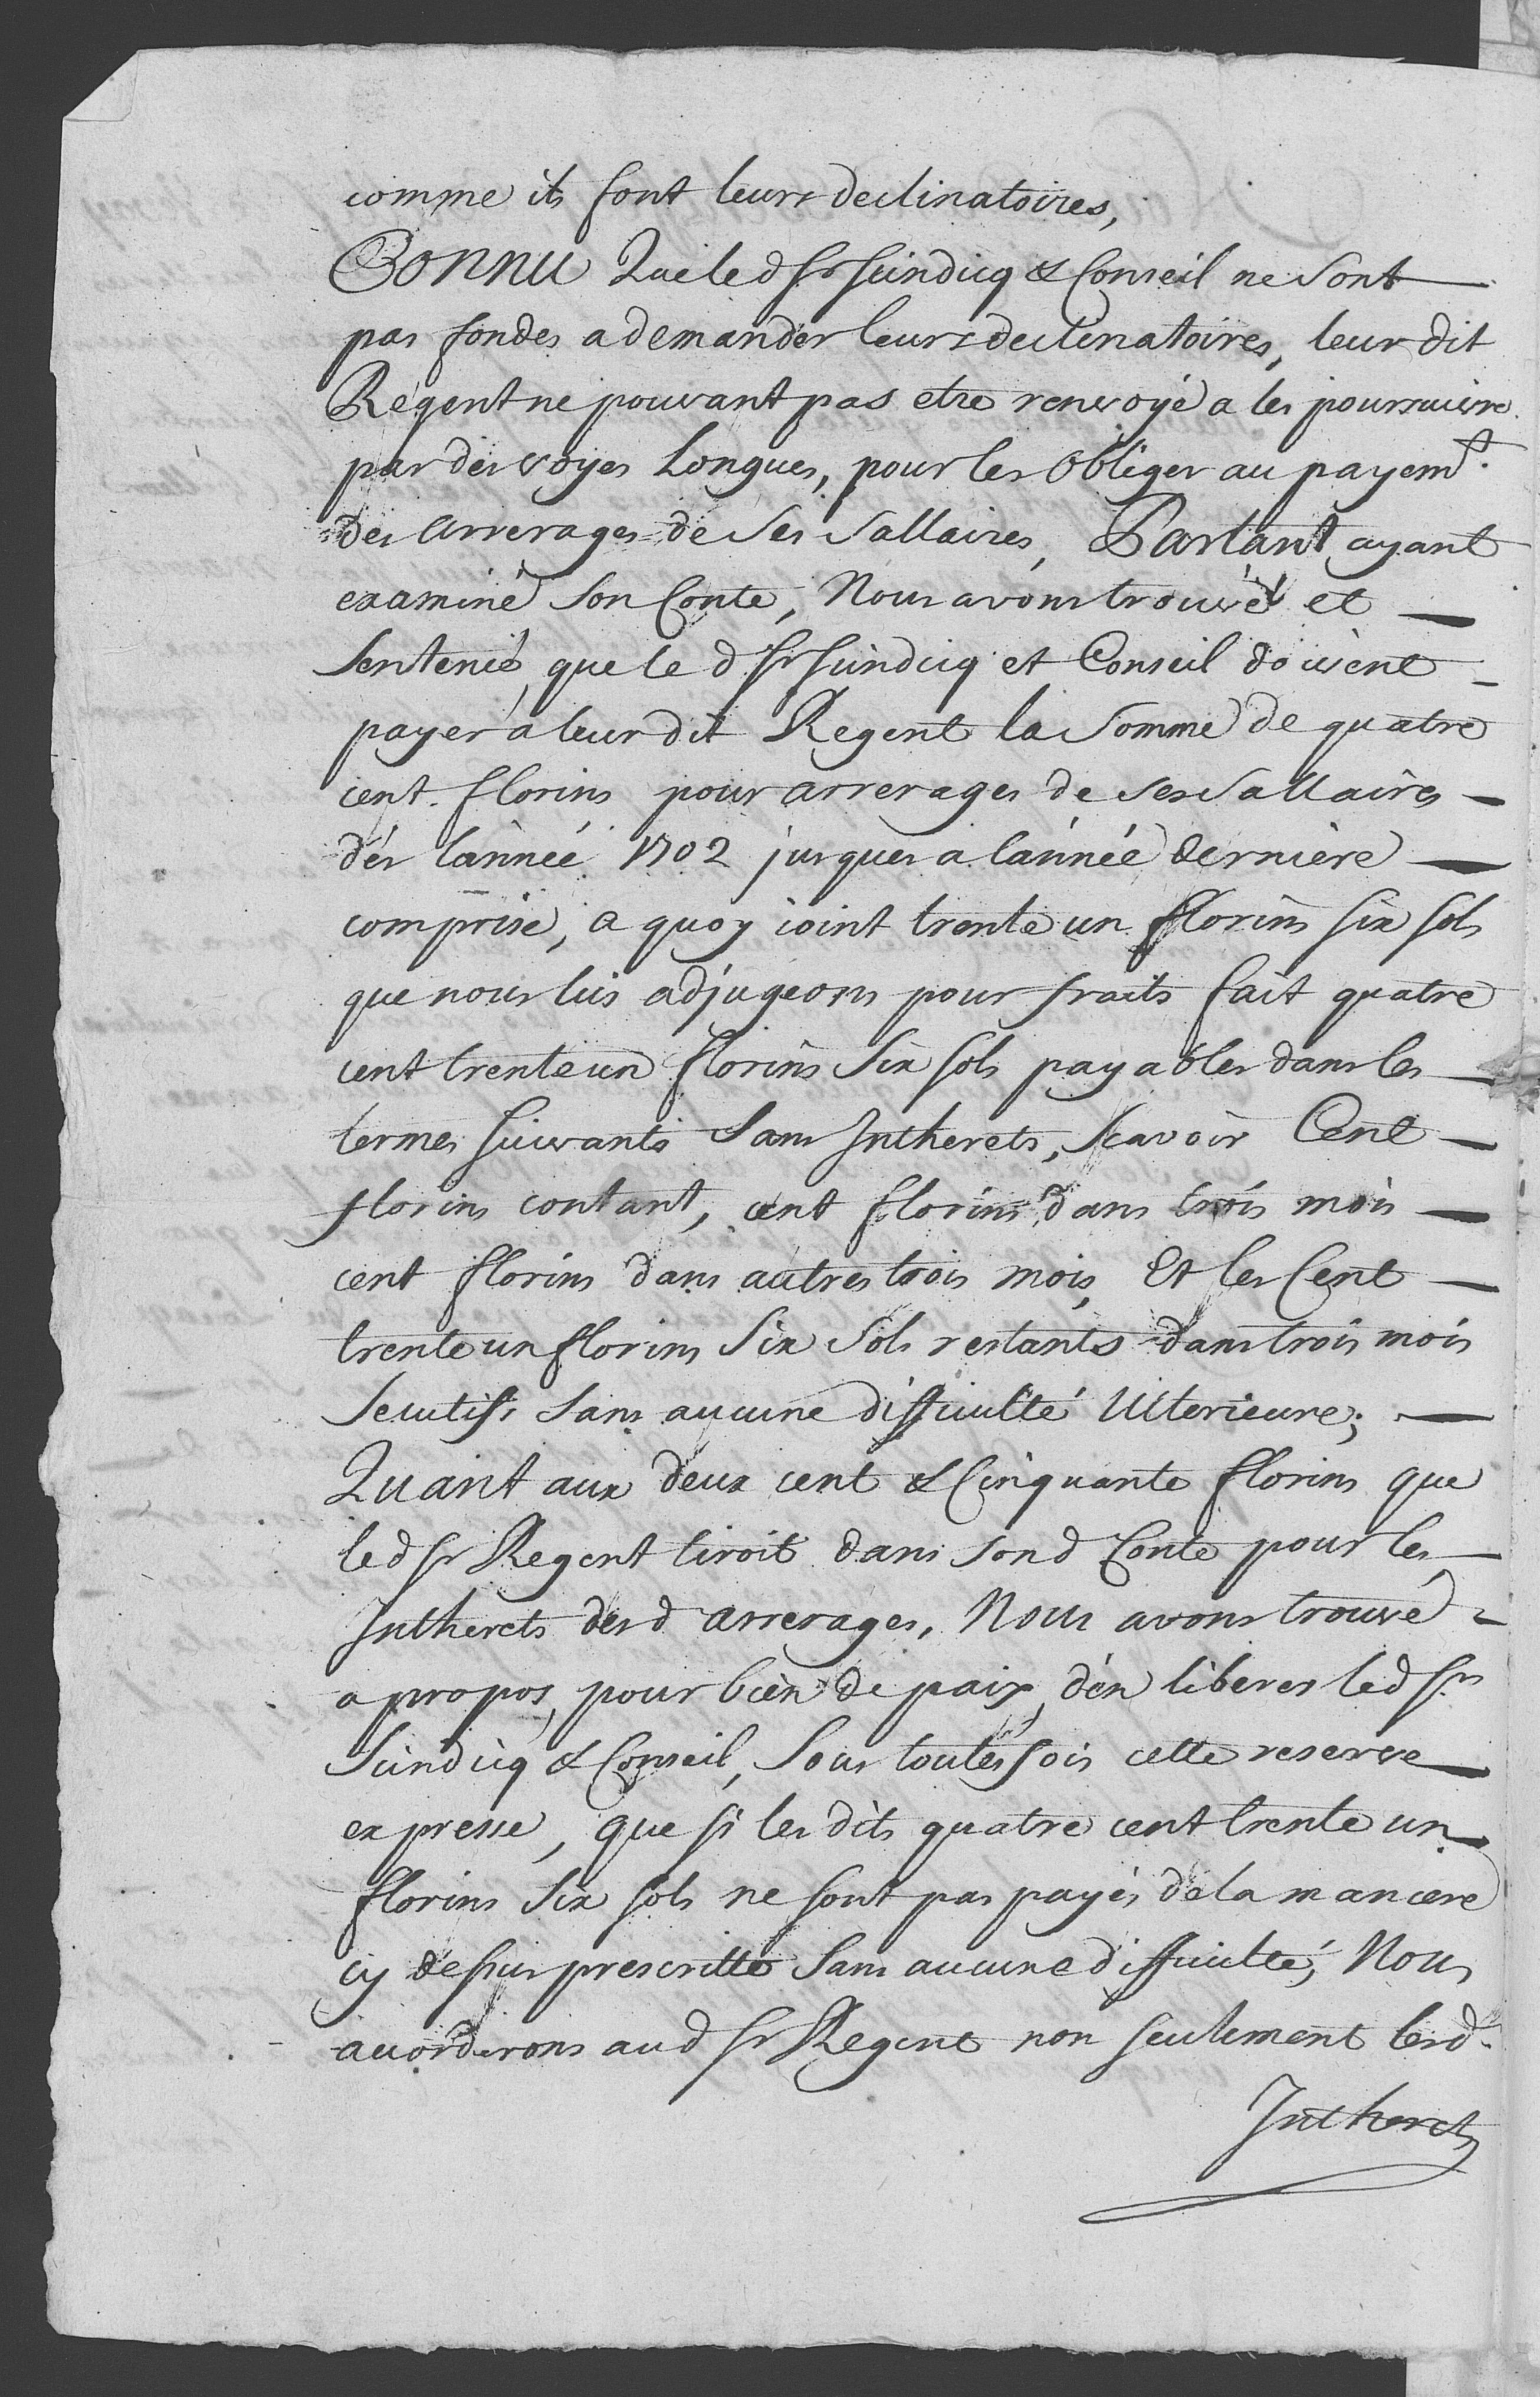 comme ils font leurs declinatoires,
Connu Que led Sr Scindicq & Conseil ne sont
pas fondes a demander leurs declinatoires, leur dit
Regent ne pouvant pas etre renvoyé a les poursuivre
par des voyes Longues, pour les obliger au payemt.
des arrerages de ses sallaires, Partant ayant
examiné son Conte, Nous avons trouvé et
sentencié, que led Sr Scindicq et Conseil doivent
payer a leur dit Regent la somme de quatre
cent florins pour arrerages de ses sallaires
dés lánnée 1702 jusques a lánnée derniere
comprise, a quoy joint trente un florins six sols
que nous luis adjugeons pour fraits fait quatre
cent trente un florins six sols payables dans les
termes suivants sans Intherets, scavoir Cent
florins contant, cent florins dans trois mois
cent florins dans autres trois mois, Et les Cent
trente un florins six sols restants dans trois mois
secutifs sans aucune difficulté Ulterieure;
Quant aux deux cent & Cinquante florins que
led Sr Regent tiroit dans sond Conte pour les
Intherets desd arrerages, Nous avons trouvé
a propos, pour bien de paix, dén liberer led Srs
Scindicq & Conseil, sous toutesfois cette reserve
expresse, que si les dits quatre cent trente un
florins six sols ne sont pas payés de la maniere
cy dessus prescritte sans aucune difficulté, Nous
accorderons aud Sr Regent non seulement lesd.
Intherets